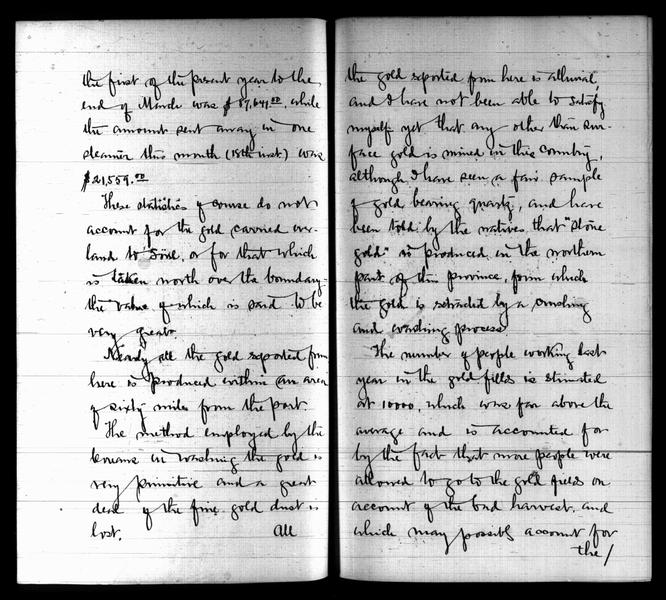 the first of the present year to the
end of March was $87,641.00. while
the amount sent away in one
steamer this month (18th inst) was
$21,559.00
These statistics of course do not
account for the gold carried over-
land to Söul, or for that which
is taken north over the boundary-
the value of which is said to be
very great.
Nearly all the gold exported from
here is produced within an area
of sixty miles from the port.
The method employed by the
Koreans in washing the gold is
very primitive and a great
deal of the fine gold dust is
lost.
All
the gold exported from here is alluvial,
and I have not been able to satisfy
myself yet that any other than sur-
face gold is mined in this country,
although I have seen a fair sample
of gold bearing quartz, and have
been told by the natives that "stone
gold" is produced in the northern
part of this province, from which
the gold is extracted by a crushing
and washing process.
The number of people working last
year in the gold fields is estimated
at 10000, which was far above the
average and is accounted for
by the fact that more people were
allowed to go to the gold fields on
account of the bad harvest, and
which may possibly account for
the/